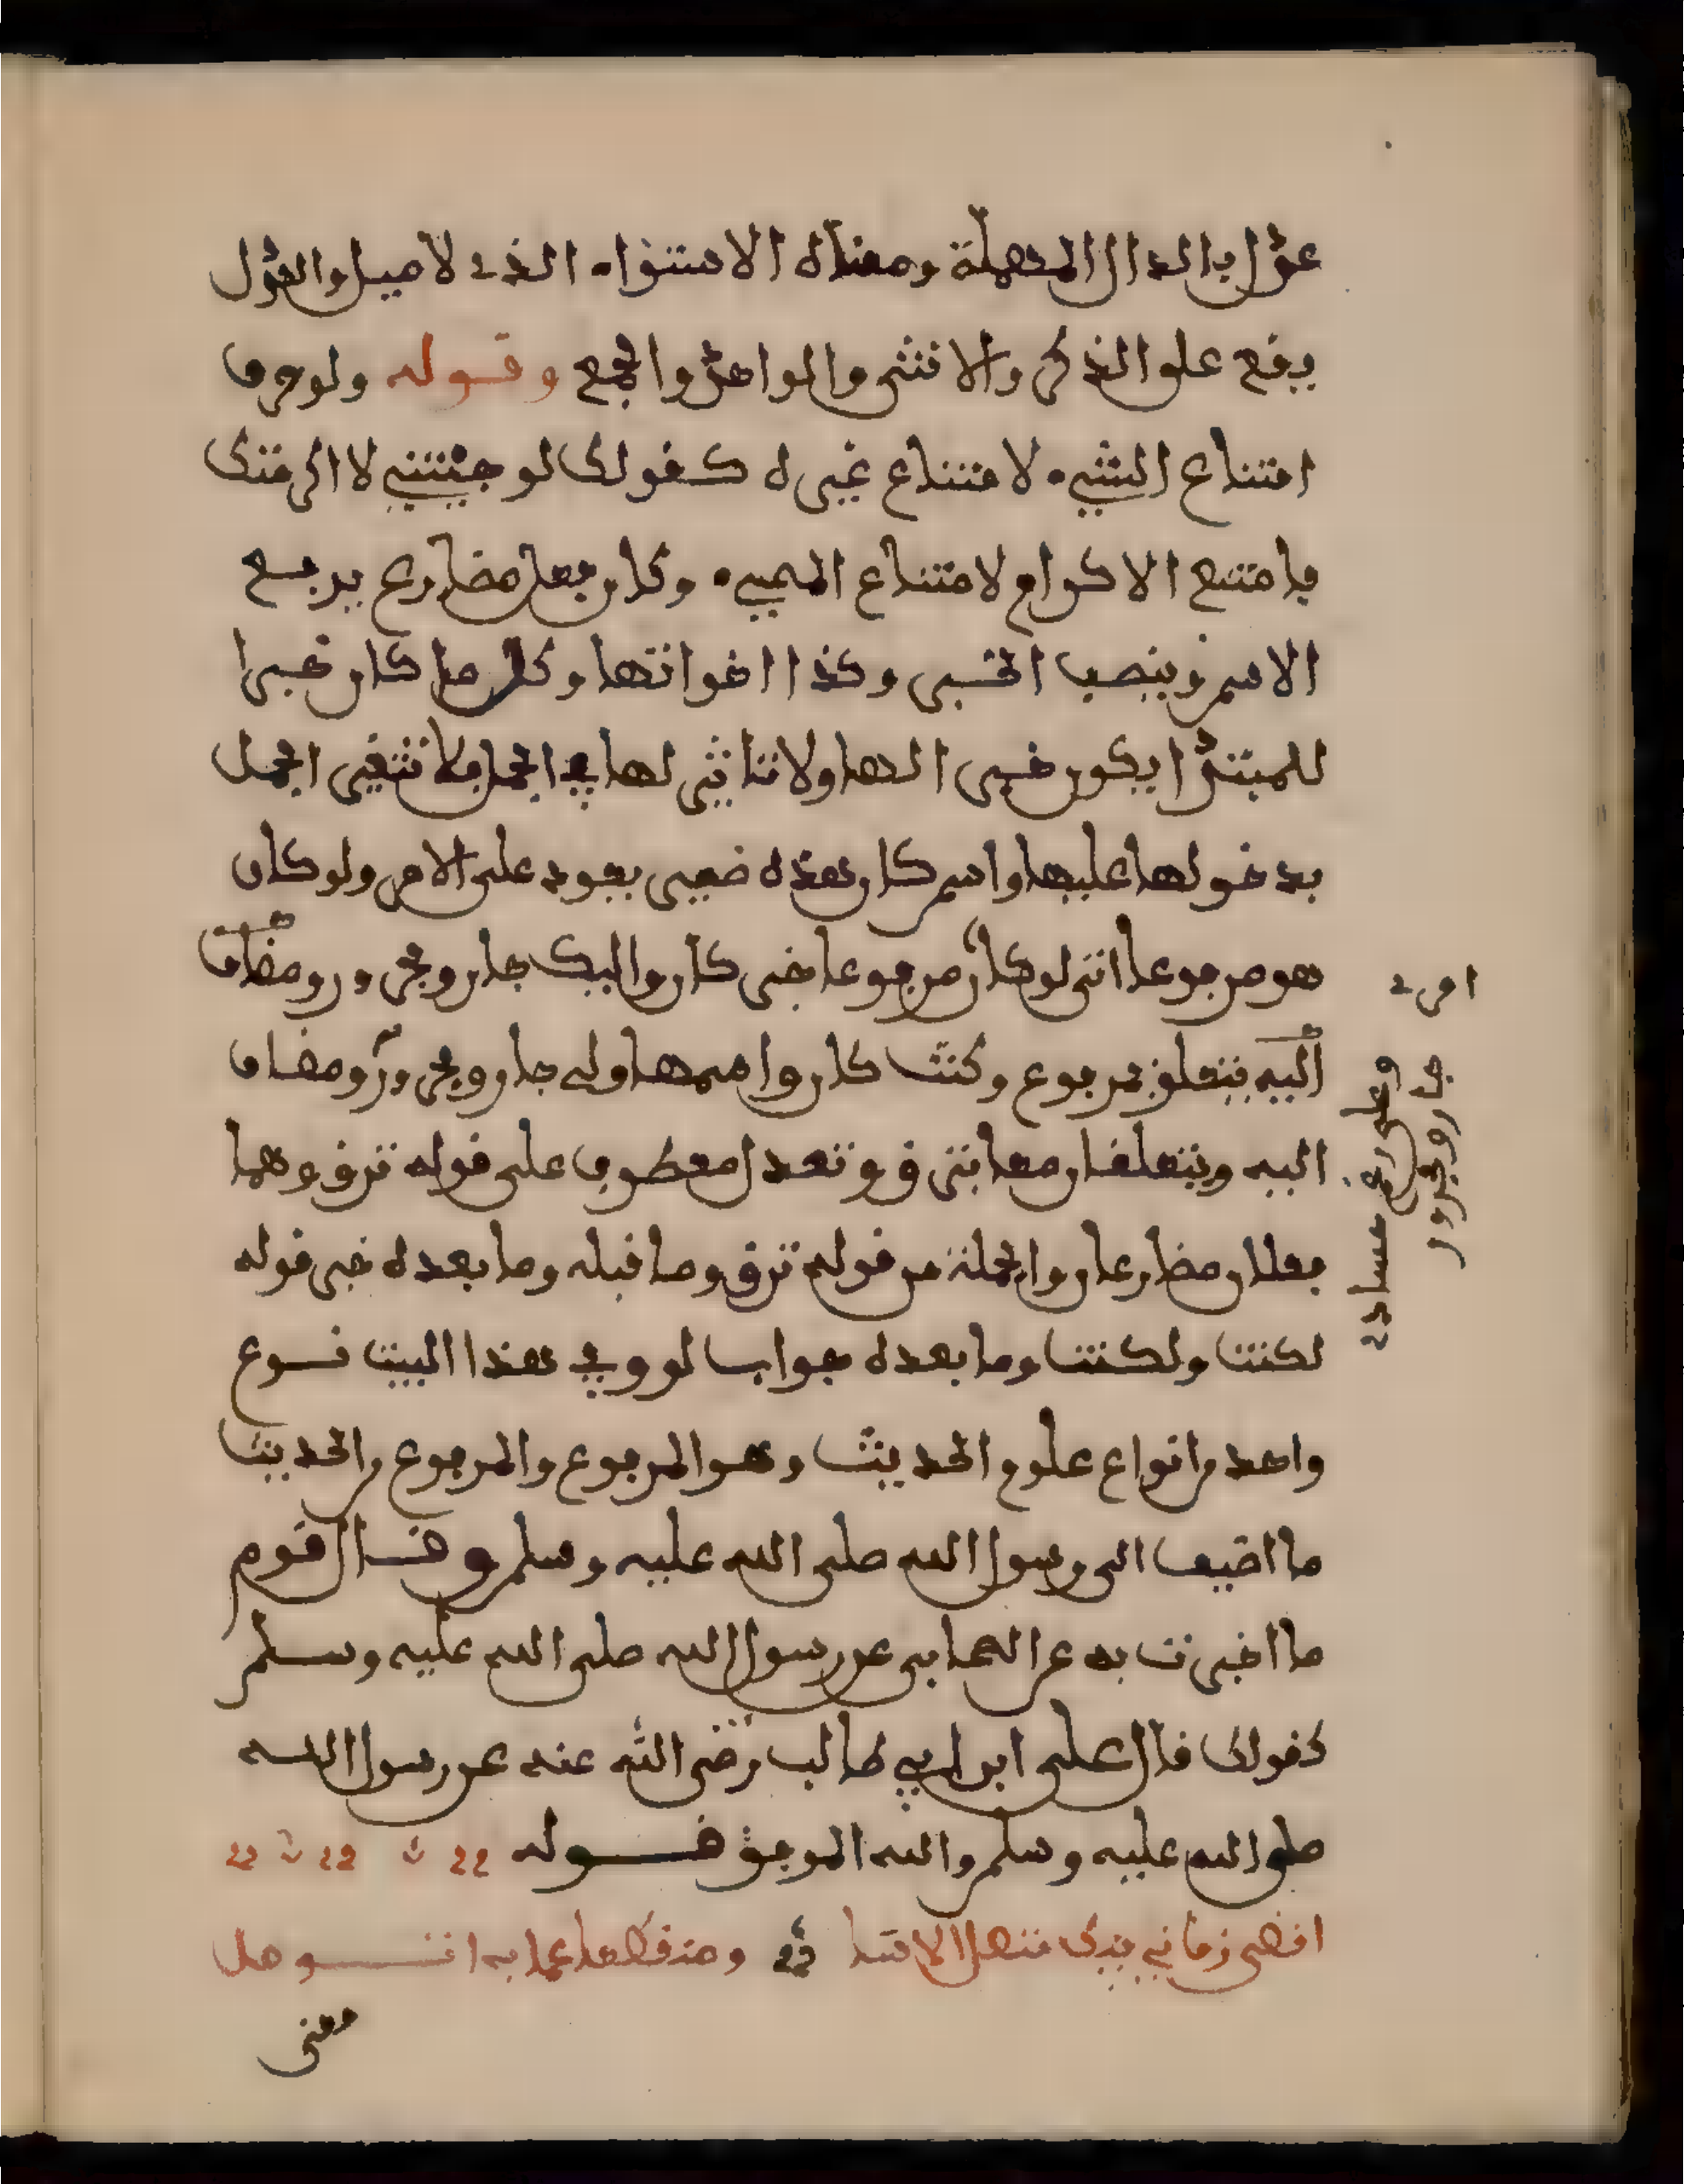 عدل بالدال المهملة ومعناه الاستواء الذي لا ميل والعدل
يقع على الذكر والانثى والواحد والجمع وقوله ولو حرف
امتناع الشيء لامتناع غيره كقولك لو جيتني لاكرمتك
فامتنع الاكرام لامتناع المجيء وكان فعل مضارع يرفع
الاسم وينصب الخبر وكذا اخواتها وكل ما كان خبرا
للمبتدا يكون خبرا لها ولا تاثير لها في الجمل فلا تتغير الجمل
بدخولها عليها واسم كان هذه ضمير يعود على الامر ولو كان
هو مرفوعا انتى لو كان مرفوعا خبر كان واليك جار ومجرور ومضاف
اليه يتعلق بمرفوع وكنت كان واسمها ولي جار ومجرور ومضاف
اليه ويتعلقان معا بترق وتعدل معطوف على قوله ترق وهما
فعلان مضارعان والجملة من قوله ترق وما قبله وما بعده خبر قوله
لكنت ولكنت وما بعده جواب لو وفي هذا البيت نوع
واحد من انواع علوم الحديث وهو المرفوع والمرفوع من الحديث
ما اضيف الى رسول الله صلى الله عليه وسلم وقال قوم
ما اخبرت به عن الصحابي عن رسول الله صلى الله عليه وسلم
كقولك قال علي ابن ابي طالب رضي الله عنه عن رسول الله
صلى الله عليه وسلم والله الموفق قوله
اقضي زماني فيك متصل الاسا ومنقطعا عما به اتوصل
معنى
امري
وعلى رغم حسادي
جار ومجرور